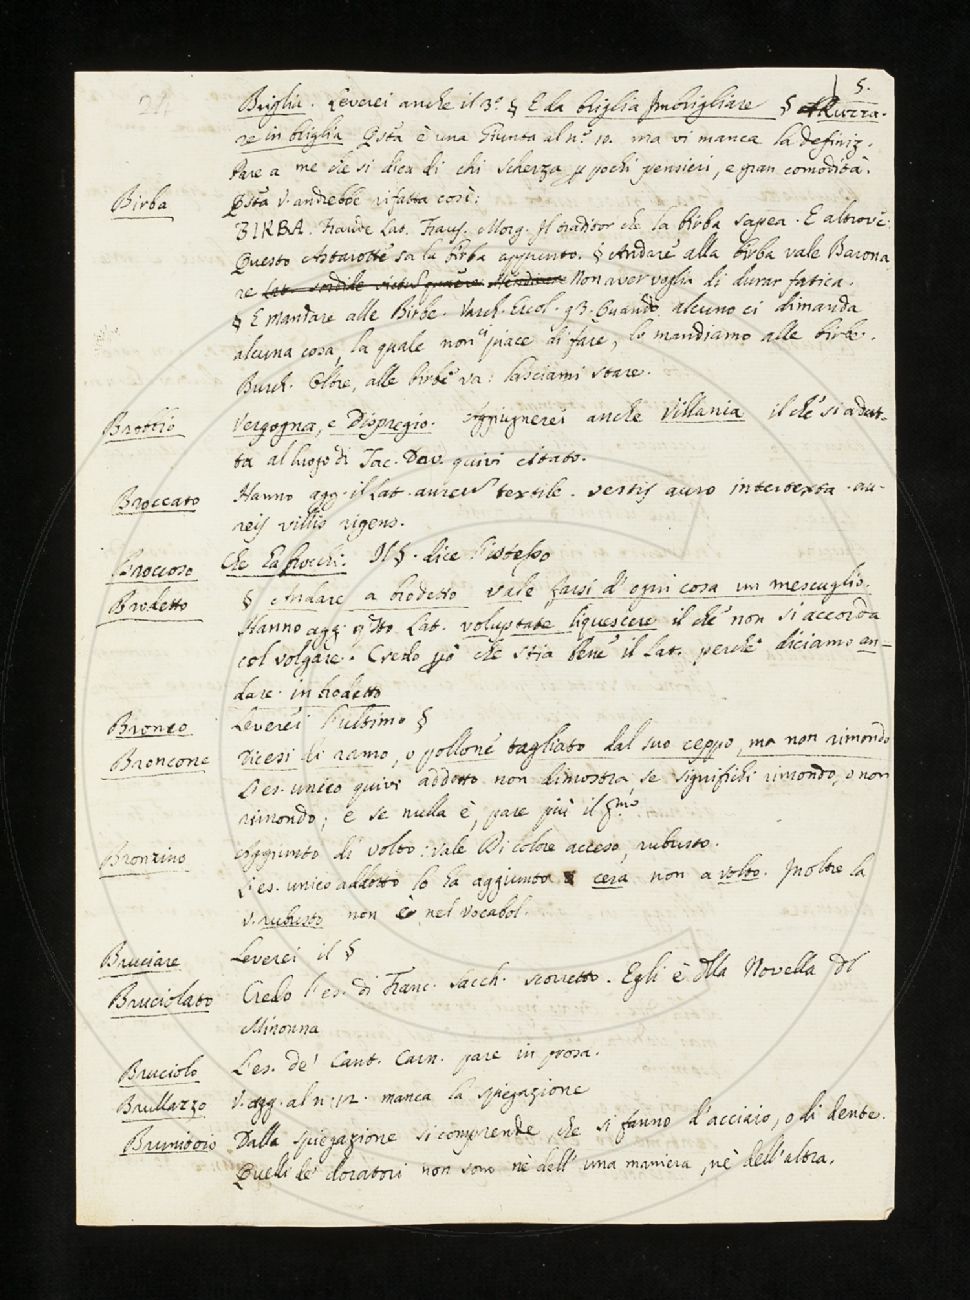 5.
Briglia. Leverei anche il 3.° § E da briglia Imbrigliare § Ruzza-
re in briglia Qsta è una Giunta al n.° 10. ma vi manca la definiz.
Pare a me che si dica di chi scherza p pochi pensieri, e gran comodità.
Birba Qsta V. andrebbe rifatta così:
BIRBA. Fraude Lat. Fraus. Morg. Il traditor che la birba sapea. E altrove:
Questo Astarotte sa la birba appunto. § Andare alla birba vale Barona
re Non aver voglia di durar fatica.
§ E Mandare alle Birbe. Varch. Ercol. 93. Quando alcuno ci dimanda
alcuna cosa, la quale non piace di fare, lo mandiamo alle birbe.
Burch. Oltre, alle birbe va: lasciami stare.
Brobbio Vergogna, e Dispregio. Aggiugnerei anche Villania il che si adat-
ta al luogo di Jac. Dav. quivi citato.
Broccato Hanno agg. il Lat. aureus textile. vestis auro intertexta. au-
reis villis rigens.
Broccoso Che ha brocchi. Il §. dice l'istesso
Brodetto § Andare a brodetto vale farsi d'ogni cosa un mescuglio.
Hanno agg. qsto Lat. voluptate liquescere il che non si accorda
col volgare. Credo pò che stia bene il Lat. perchè diciamo an-
dare in brodetto
Bronco Leverei l'ultimo §
Broncone Dicesi di ramo, o pollone tagliato dal suo ceppo, ma non rimondo
L'es. unico quivi addotto non dimostra, se significhi rimondo, o non
rimondo; e se nulla è, pare più il pmo.
Bronzino Aggiunto di volto: vale Di colore acceso, rubesto.
L'es. unico addotto lo ha aggiunto a cera non a volto. Inoltre la
V. rubesto non è nel Vocabol.
Bruciare Leverei il §
Bruciolato Credo l'es. di Franc. Sacch. scorretto. Egli è dlla Novella dl
Minonna
Bruciolo L'es. de' Cant. Carn. pare in prosa.
Brullazzo V. agg. al n. 12. manca la spiegazione
Brunitoio Dalla spiegazione si comprende, che si fanno d'acciaio, o di dente.
Quelli de' doratori non sono nè dell'una maniera, nè dell'altra.